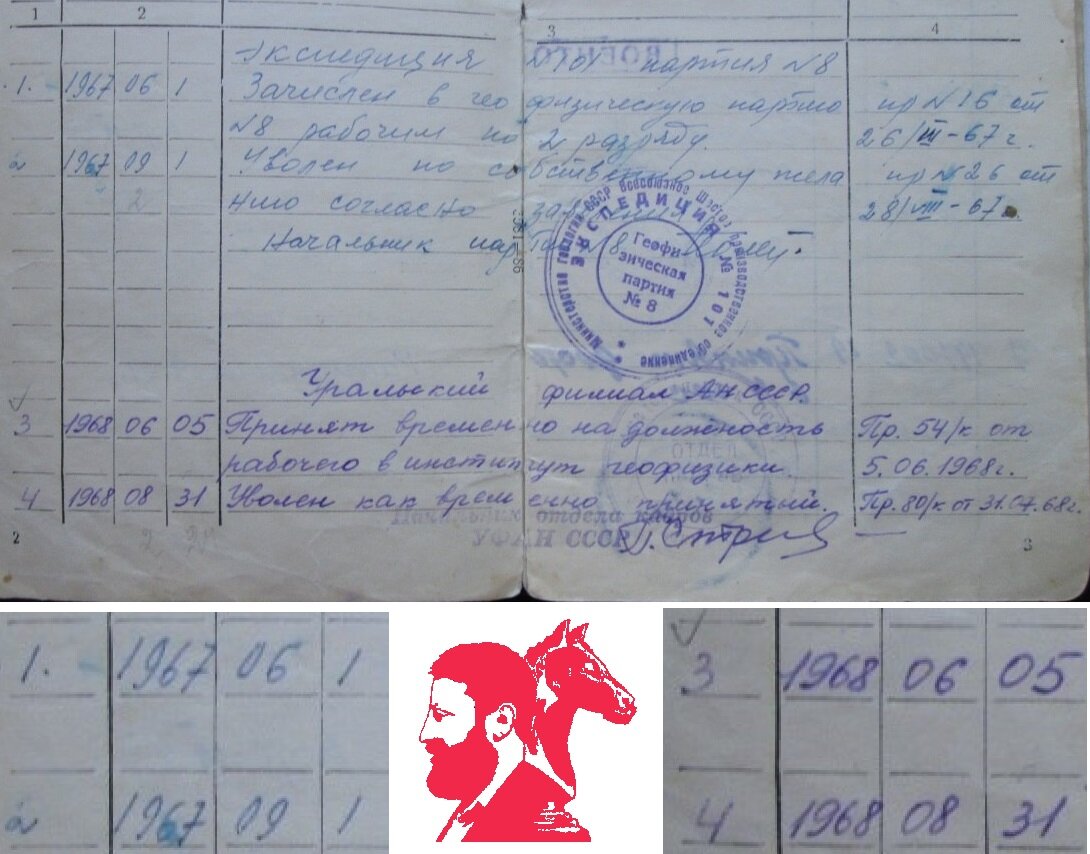 1 2 3 4
Экспедиция №101 партия №8
1. 1967 06 1 Зачислен в геофизическую партию пр №16 от
№8 рабочим по 2 разряду. 26/III-67г.
2 1967 09 1 Уволен по собственному жела пр №26 от
нию согласно 28/VIII-67г.
Начальник
Министерство геологии СССР Всесоюзное производственное объединение
ЭКСПЕДИЦИЯ № 101
Геофи-
зическая
партия
№ 8
Уральский филиал АН СССР.
3 1968 06 05 Принят временно на должность Пр. 54/к от
рабочего в институт геофизики. 5.06.1968г.
4 1968 08 31 Уволен как временно принятый. Пр. 80/к от 31.07.68г.
ОТДЕЛ
Начальник отдела кадров
УФАН СССР
2 3
1. 1967 06 1
2 1967 09 1
3 1968 06 05
4 1968 08 31